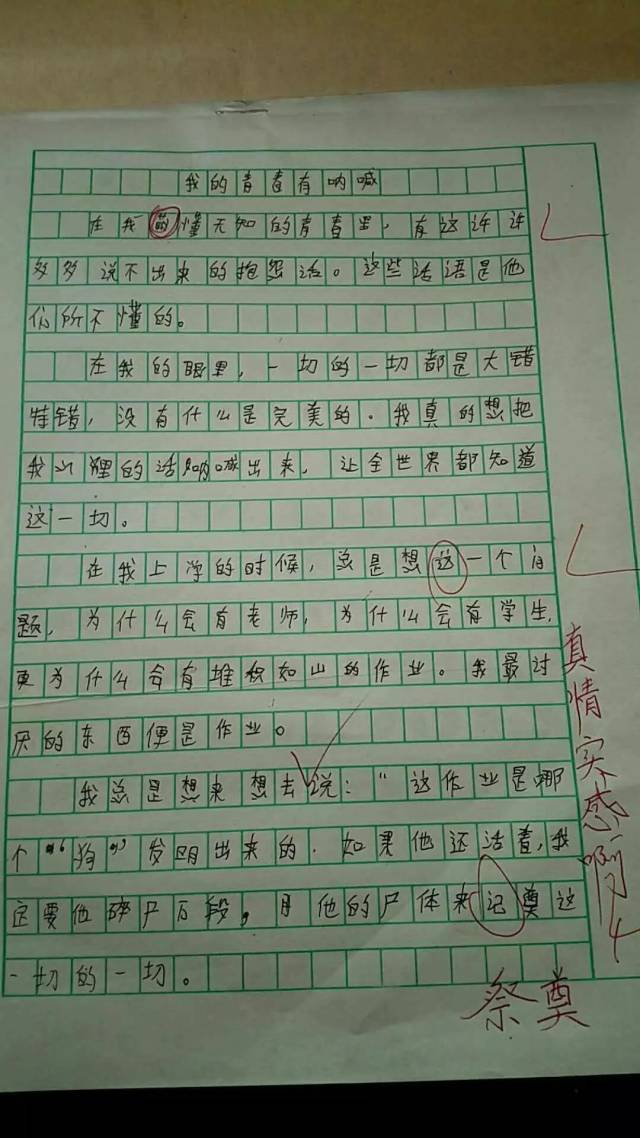 我的青春有呐喊
在我萌懂无知的青春里，有这许许
多多说不出来的抱怨话。这些话语是他
们所不懂的。
在我的眼里，一切的一切都是大错
特错，没有什么是完美的。我真的想把
我心裡的话呐喊出来，让全世界都知道
这一切。
在我上学的时候，总是想这一个问
题，为什么会有老师，为什么会有学生，
更为什么会有堆积如山的作业。我最讨
厌的东西便是作业。
我总是想来想去说：“这作业是哪
个“狗”发明出来的．如果他还活着，我
定要他碎尸万段，用他的尸体来记奠这
一切的一切。
真情实感啊！
祭奠